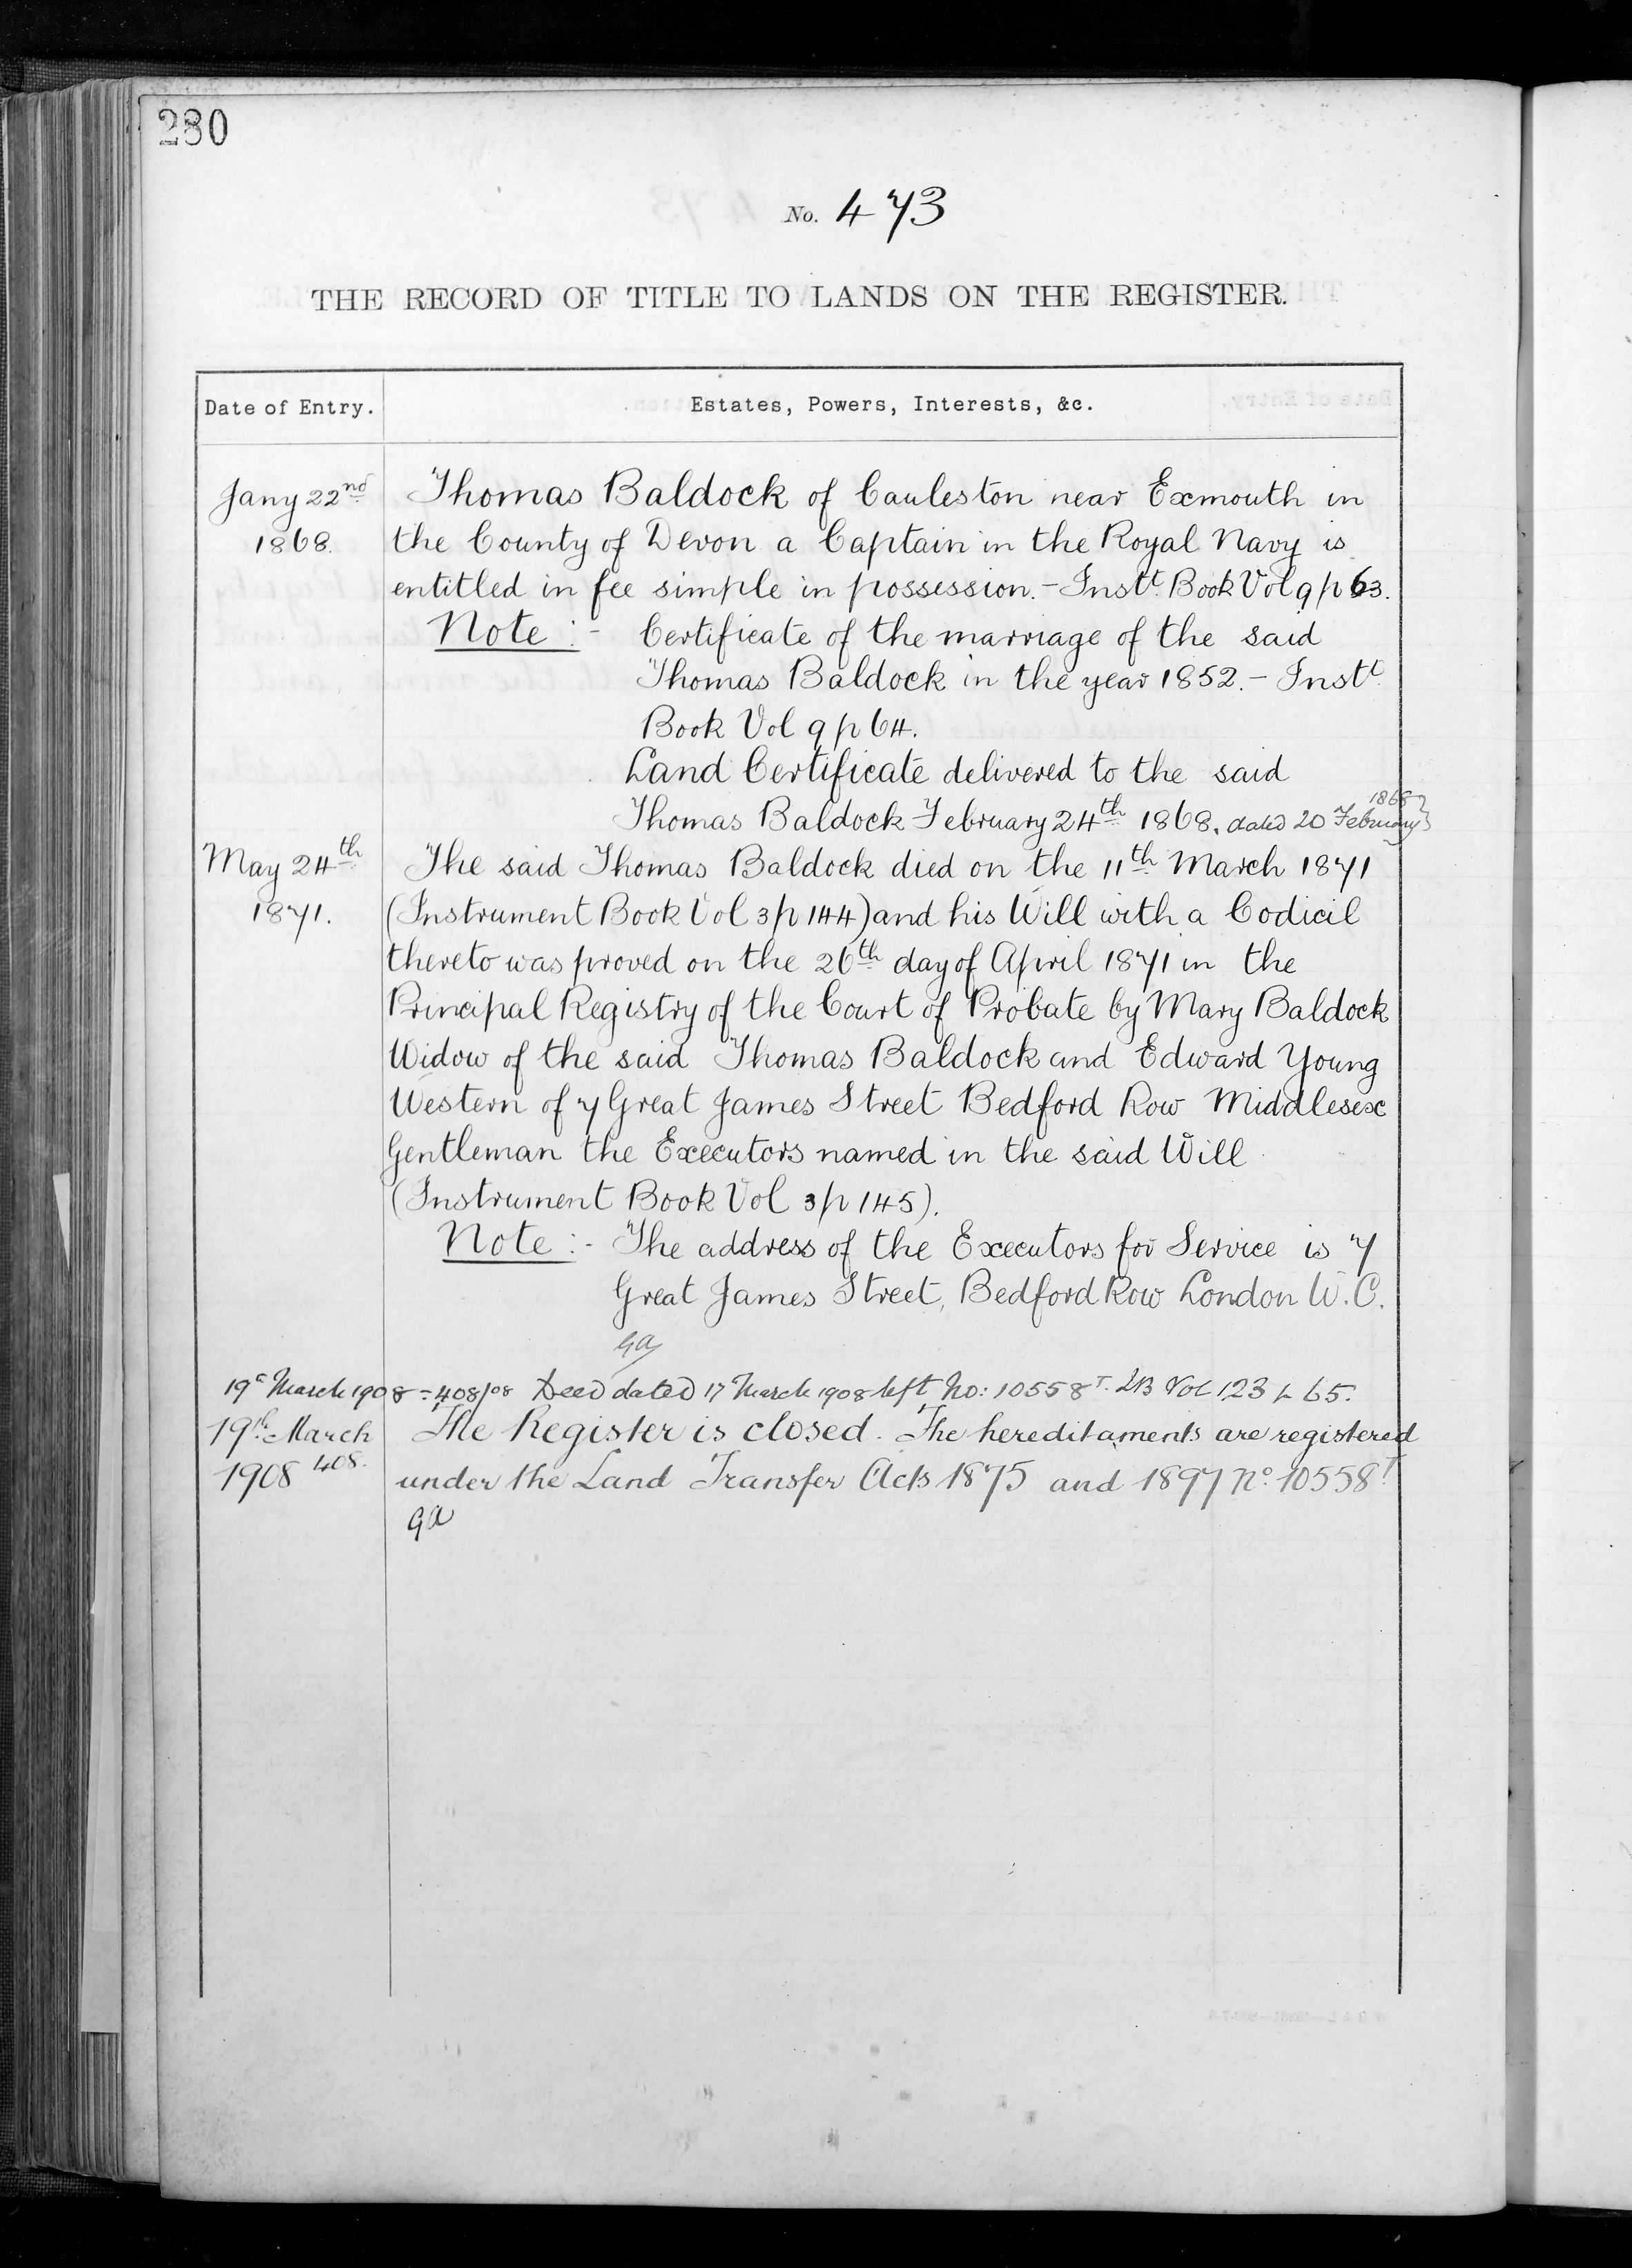 230
No. 473
THE RECORD OF TITLE TO LANDS ON THE REGISTER.
Date of Entry. Estates, Powers, Interests, &c.
Jany 22nd Thomas Baldock of Cauleston near Exmouth in
1868. the County of Devon a Captain in the Royal Navy is
entitled in fee simple in possession. - Instt. Book Vol 9 p 63.
Note :- Certificate of the marriage of the said
Thomas Baldock in the year 1852. - Instt
Book Vol 9 p 64.
Land Certificate delivered to the said
Thomas Baldock February 24th 1868. dated 20 February 1868
May 24th The said Thomas Baldock died on the 11th March 1871
1871. (Instrument Book Vol 3 p 144) and his Will with a Codicil
thereto was proved on the 26th day of April 1871 in the
Principal Registry of the Court of Probate by Mary Baldock
Widow of the said Thomas Baldock and Edward Young
Western of 7 Great James Street Bedford Row Middlesex
Gentleman the Executors named in the said Will
(Instrument Book Vol 3 p 145).
Note :- The address of the Executors for Service is 7
Great James Street, Bedford Row London W.C.
GA
19 March 1908 - 408/08 Deed dated 17 March 1908 left No: 10558T. Vol 123 p 65.
19th March The Register is closed. The hereditaments are registered
1908 408. under the Land Transfer Acts 1875 and 1897 No. 10558T
GA